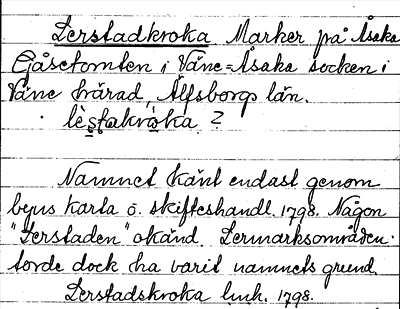 Lerstadkroka Marker på Åsaka
Gåsetomten i Väne=Åsaka socken i
Väne härad, Älfsborgs län.
lèstakròka ?
Namnet känt endast genom
karta o. skifteshandl. 1798. Någon
"Lerstaden" okänd. Lermarksområden
torde dock ha varit namnets grund.
Lerstadskroka 1798.